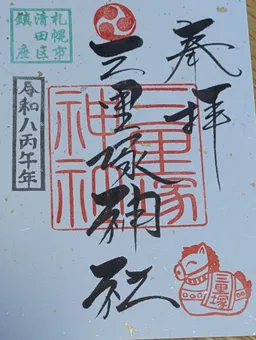 奉拝
三里塚神社
三里塚
神社
札幌市
清田区
鎮座
令和八丙午年
三里塚